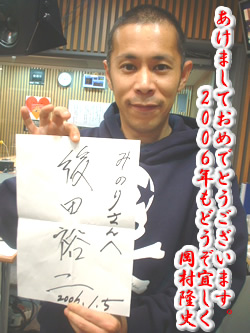 あけましておめでとうございます。
2006年もどうぞ宜しく
岡村隆史
みのりさんへ
織田裕二
2006.1.5